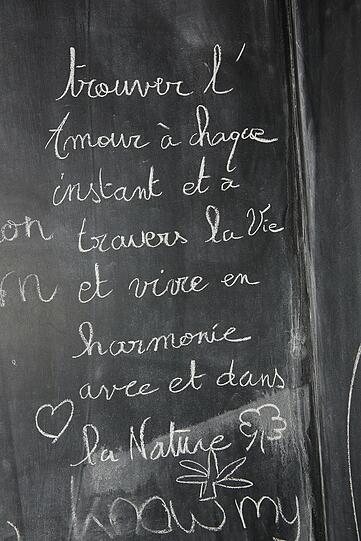 trouver l'
Amour à chaque
instant et à
travers la Vie
et vivre en
harmonie
avec et dans
la Nature
know my